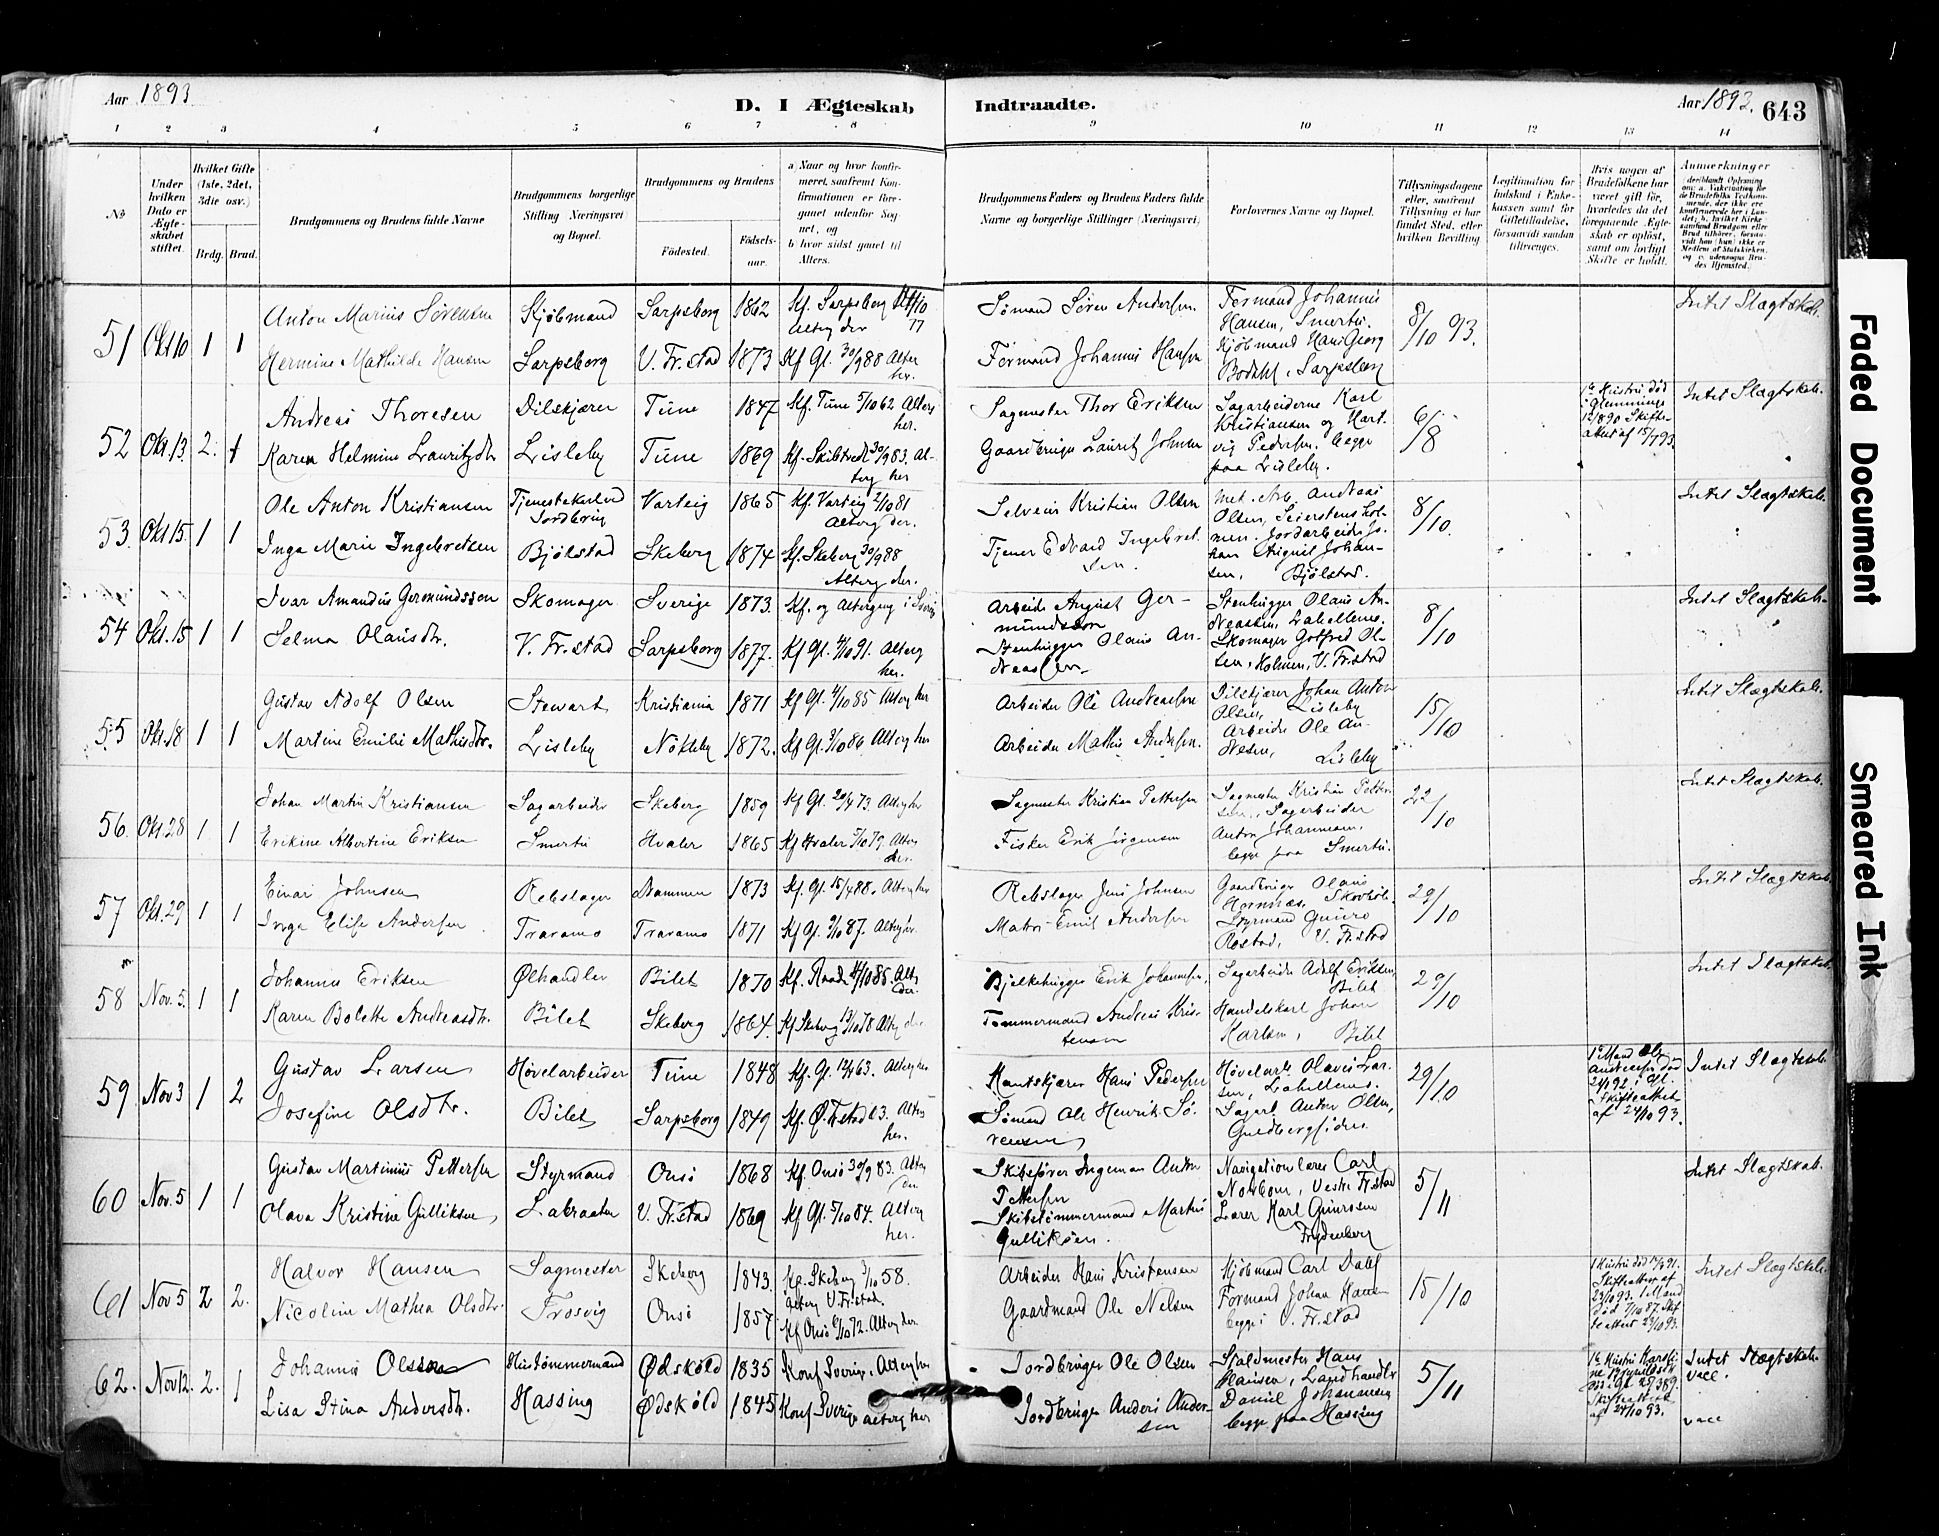 Aar 1893
D. I Ægteskab Indtraadte.
Aar 1893. 643
1 2 3 4 5 6 7 8 9 10 11 12 13 14
№
Under hvilken Dato er Ægteskabet stiftet.
Hvilket Gifte (1ste, 2det, 3die osv.)
Brdg. Brud.
Brudgommens og Brudens fulde Navne
Brudgommens borgerlige Stilling Næringsvei og Bopæl.
Brudgommens og Brudens
Fødested. Fødselsaar.
a) Naar og hvor konfirmeret, saafremt Konfirmationen er foregaaet udenfor Sognet, og
b) hvor sidst gaaet til Alters.
Brudgommens Faders og Brudens Faders fulde Navne og borgerlige Stillinger (Næringsvei)
Forlovernes Navne og Bopæl.
Tillysningsdagene eller, saafremt Tillysning ei har fundet Sted, efter hvilken Bevilling
Legitimation for Indskud i Enkekassen samt for Giftetilladelse, forsaavidt saadan tiltrænges.
Hvis nogen af Brudefolkene har været gift før, hvorledes da det foregaaende Ægteskab er opløst, samt om lovligt Skifte er holdt.
Anmærkninger
51 Okt 10 1 1
Anton Marius Sørensen Kjøbmand Sarpsborg 1862 Kf. Sarpsborg
Alterg der
Hermine Mathilde Hansen Sarpsborg V. Fr.stad 1873 Kf Gl. 30/9 88 Alter her.
Sømand Søren Andersen.
Formand Johannis Hansen
Formand Johannis
Hansen, Smertu.
Kjøbmand Hans Georg
Bodahl, Sarpsborg
8/10 93.
Intet Slægtskab.
52 Okt. 13 2. 1
Andreas Thoresen Dilskjærer Tune 1847 Kf. Tune 5/10 62 Alterg her.
Karen Helmine Lauritzdtr Lisleby Tune 1869 Kf. Skibtvedt 30/9 83. Alterg her
Sagmester Thor Eriksen
Gaardbruger Lauritz Johnsen
Sagarbeiderne Karl
Kristiansen og Hartvig Pedersen, begge
paa Lisleby.
6/8
1e Hustru død
i Glemminge
Skifteattest af 15/7 93.
Intet Slægtskab.
53. Okt 15. 1 1
Ole Anton Kristiansen Tjenestekarl Varteig 1865 Kf. Varteig 2/10 81
Alterg der.
Inga Marie Ingebretsen Bjølstad Skeberg 1874 Kf. Skeberg 30/9 88
Alterg der.
Selveier Kristian Olsen
Tjener Edvard Ingebretsen.
Andreas
Olsen, Seierstensholmen. Jordarbeider Johan August Johansen, Bjølstad.
8/10.
Intet Slægtskab.
54 Okt. 15 1 1
Ivar Amandus Germundsson Skomager Sverige 1873. Kf. og Altergang i Sverig
Selma Olausdtr. V. Fr.stad Sarpsborg 1877. Kf Gl. 4/10 91. Alterg her.
Arbeider August Germundsson
Stenhugger Olaus Andreassen
Stenhugger Olaus Andreassen, Lahellemo.
Skomager Gotfred Olsen, Holmen, V. Fr.stad
8/10
Intet Slægtskab.
55 Okt. 18 1 1
Gustav Adolf Olsen Stewart Kristiania 1871 Kf Gl. 4/10 85 Alterg her
Martine Emilie Mathisdtr. Lisleby Nøkleby 1872. Kf Gl. 3/10 86 Alterg her
Arbeider Ole Andreassen
Arbeider Mathis Andersen.
Dilskjærer Johan Anton
Olsen, Lisleby
Arbeider Ole Andresen, Lisleby
15/10
Intet Slægtskab.
56. Okt. 28 1 1
Johan Martin Kristiansen Sagarbeider Skeberg 1859 Kf Gl. 20/4 73. Alterg her
Erikine Albertine Eriksen Smertu Hvaler 1865 Kf Hvaler 5/10 79. Alterg der.
Sagmester Kristian Pettersen
Fisker Erik Jørgensen
Sagmester Kristian Pettersen, Sagarbeider
Anton Johannesen,
begge paa Smertu.
22/10
Intet Slægtskab.
57 Okt. 29 1 1
Einar Johnsen Rebslager Drammen 1873 Kf. Gl. 15/4 88. Alterg her
Inga Elise Andersen Traramo Traramo 1871 Kf Gl. 2/10 87. Alterg her.
Rebslager Jens Johnsen
Matros Emil Andersen
Gaardbruger Olaus
Hornnæs,
Styrmand
Røstad, V. Fr.stad
29/10
Intet Slægtskab.
58 Nov. 5. 1 1
Johannes Eriksen Ølhandler Bilet 1870 Kf. Raade 4/10 85. Alterg der.
Karen Bolette Andreasdtr. Bilet Skeberg 1864. Kf Skeberg 13/10 78 Alterg der
Bjelkehugger Erik Johannesen,
Tømmermand Andreas Kristensen
Sagarbeider Adolf Eriksen,
Bilet
Handelskarl Johan
Karlsen, Bilet
29/10
Intet Slægtskab.
59 Nov 3 1 2
Gustav Larsen Høvelarbeider Tune 1848 Kf. Gl. 12/4 63. Alterg her
Josefine Olsdtr. Bilet Sarpsborg 1849 Kf. Ø. Fr.stad 63. Alterg her.
Kantskjærer Hans Pedersen
Sømand Ole Henrik Sørensen
Høvelarb Olavis Larsen, Lahellemo.
Sagarb Anton Olsen,
Guldbergsiden
29/10.
1e Mand Ole
Andreassen død
24/1 92 i Gl.
Skifteattest
af 24/10 93.
Intet Slægtskab.
60 Nov. 5 1 1
Gustav Martinius Pettersen Styrmand Onsø 1868 Kf. Onsø 30/9 83. Alterg der
Olava Kristine Gulliksen Labraaten V. Fr.stad 1869 Kf Gl. 5/10 84. Alterg her.
Skibsfører Ingeman Anton
Pettersen
Skibstømmermand Martin
Gulliksen.
Navigationlærer Carl
Norbom, Vestre Fr.stad
Lærer Karl Gunersen
Frydenberg
5/11
Intet Slægtskab.
61 Nov 5 2 2.
Halvor Hansen Sagmester Skeberg 1843. Kf. Skeberg 3/10 58.
Alterg V. Fr.stad.
Nicoline Mathea Olsdtr. Trosvig Onsø 1857 Kf Onsø 6/10 72. Alterg der
Arbeider Hans Kristensen
Gaardmand Ole Nelsen
Kjøbmand Carl Dahl
Formand Johan Hansen
begge i V. Fr.stad
15/10
1 Hustru død
Skifteattest af
23/10 93. 1 Mand
død 7/10 87. Skifteattest 23/10 93.
Intet Slægtskab.
62. Nov 12. 2. 1
Johannes Olsson Hustømmermand Ødskøld 1835 Konf Sverige. Alterg her
Lisa Stina Andersdtr. Hassing Ødskøld 1845 Konf Sverige Alterg her
Jordbruger Ole Olsen
Jordbruger Anders Andersen
Hans
Hansen, Landhandler
Daniel Johannesen
begge paa Hassing
5/11
1e Hustru
Skifteattest
af 24/10 93.
Intet Slægtskab.
vacc.
vacc
Faded Document
Smeared Ink